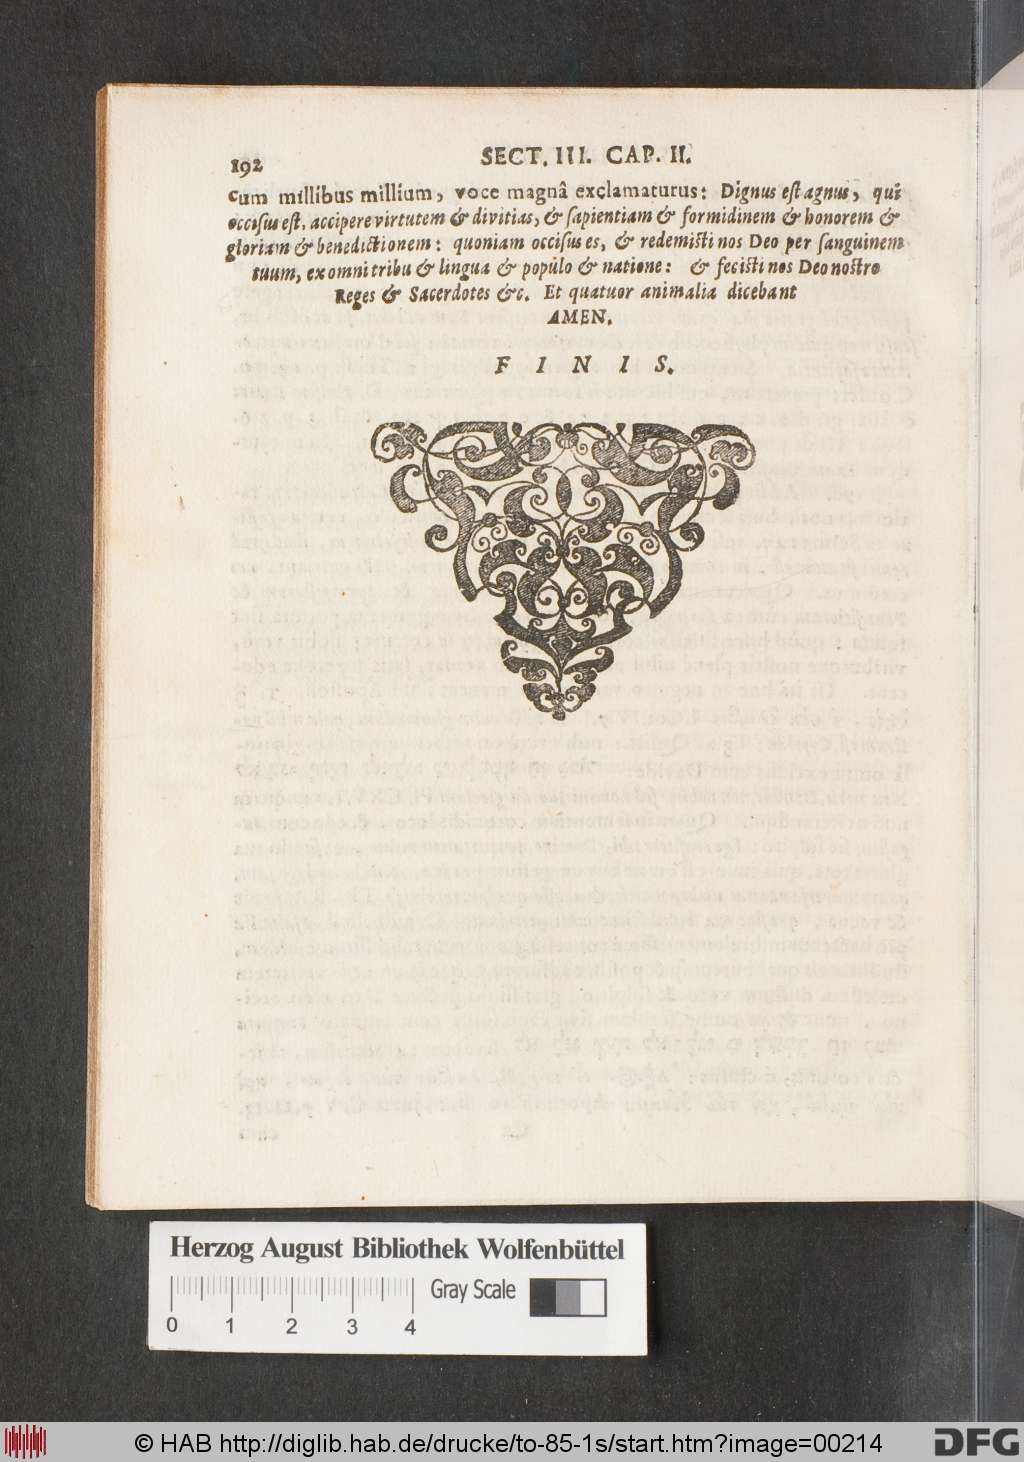 192
SECT. III. CAP. II.
cum millibus millium, voce magnâ exclamaturus: Dignus est agnus, qui
occisus est, accipere virtutem & divitias, & sapientiam & formidinem & honorem &
gloriam & benedictionem: quoniam occisus es, & redemisti nos Deo per sanguinem
tuum, ex omni tribu & lingua & populo & natione: & fecisti nos Deo nostro
Reges & Sacerdotes &c. Et quatuor animalia dicebant
AMEN.
F I N I S.
Herzog August Bibliothek Wolfenbüttel
Gray Scale
0 1 2 3 4
© HAB http://diglib.hab.de/drucke/to-85-1s/start.htm?image=00214
DFG